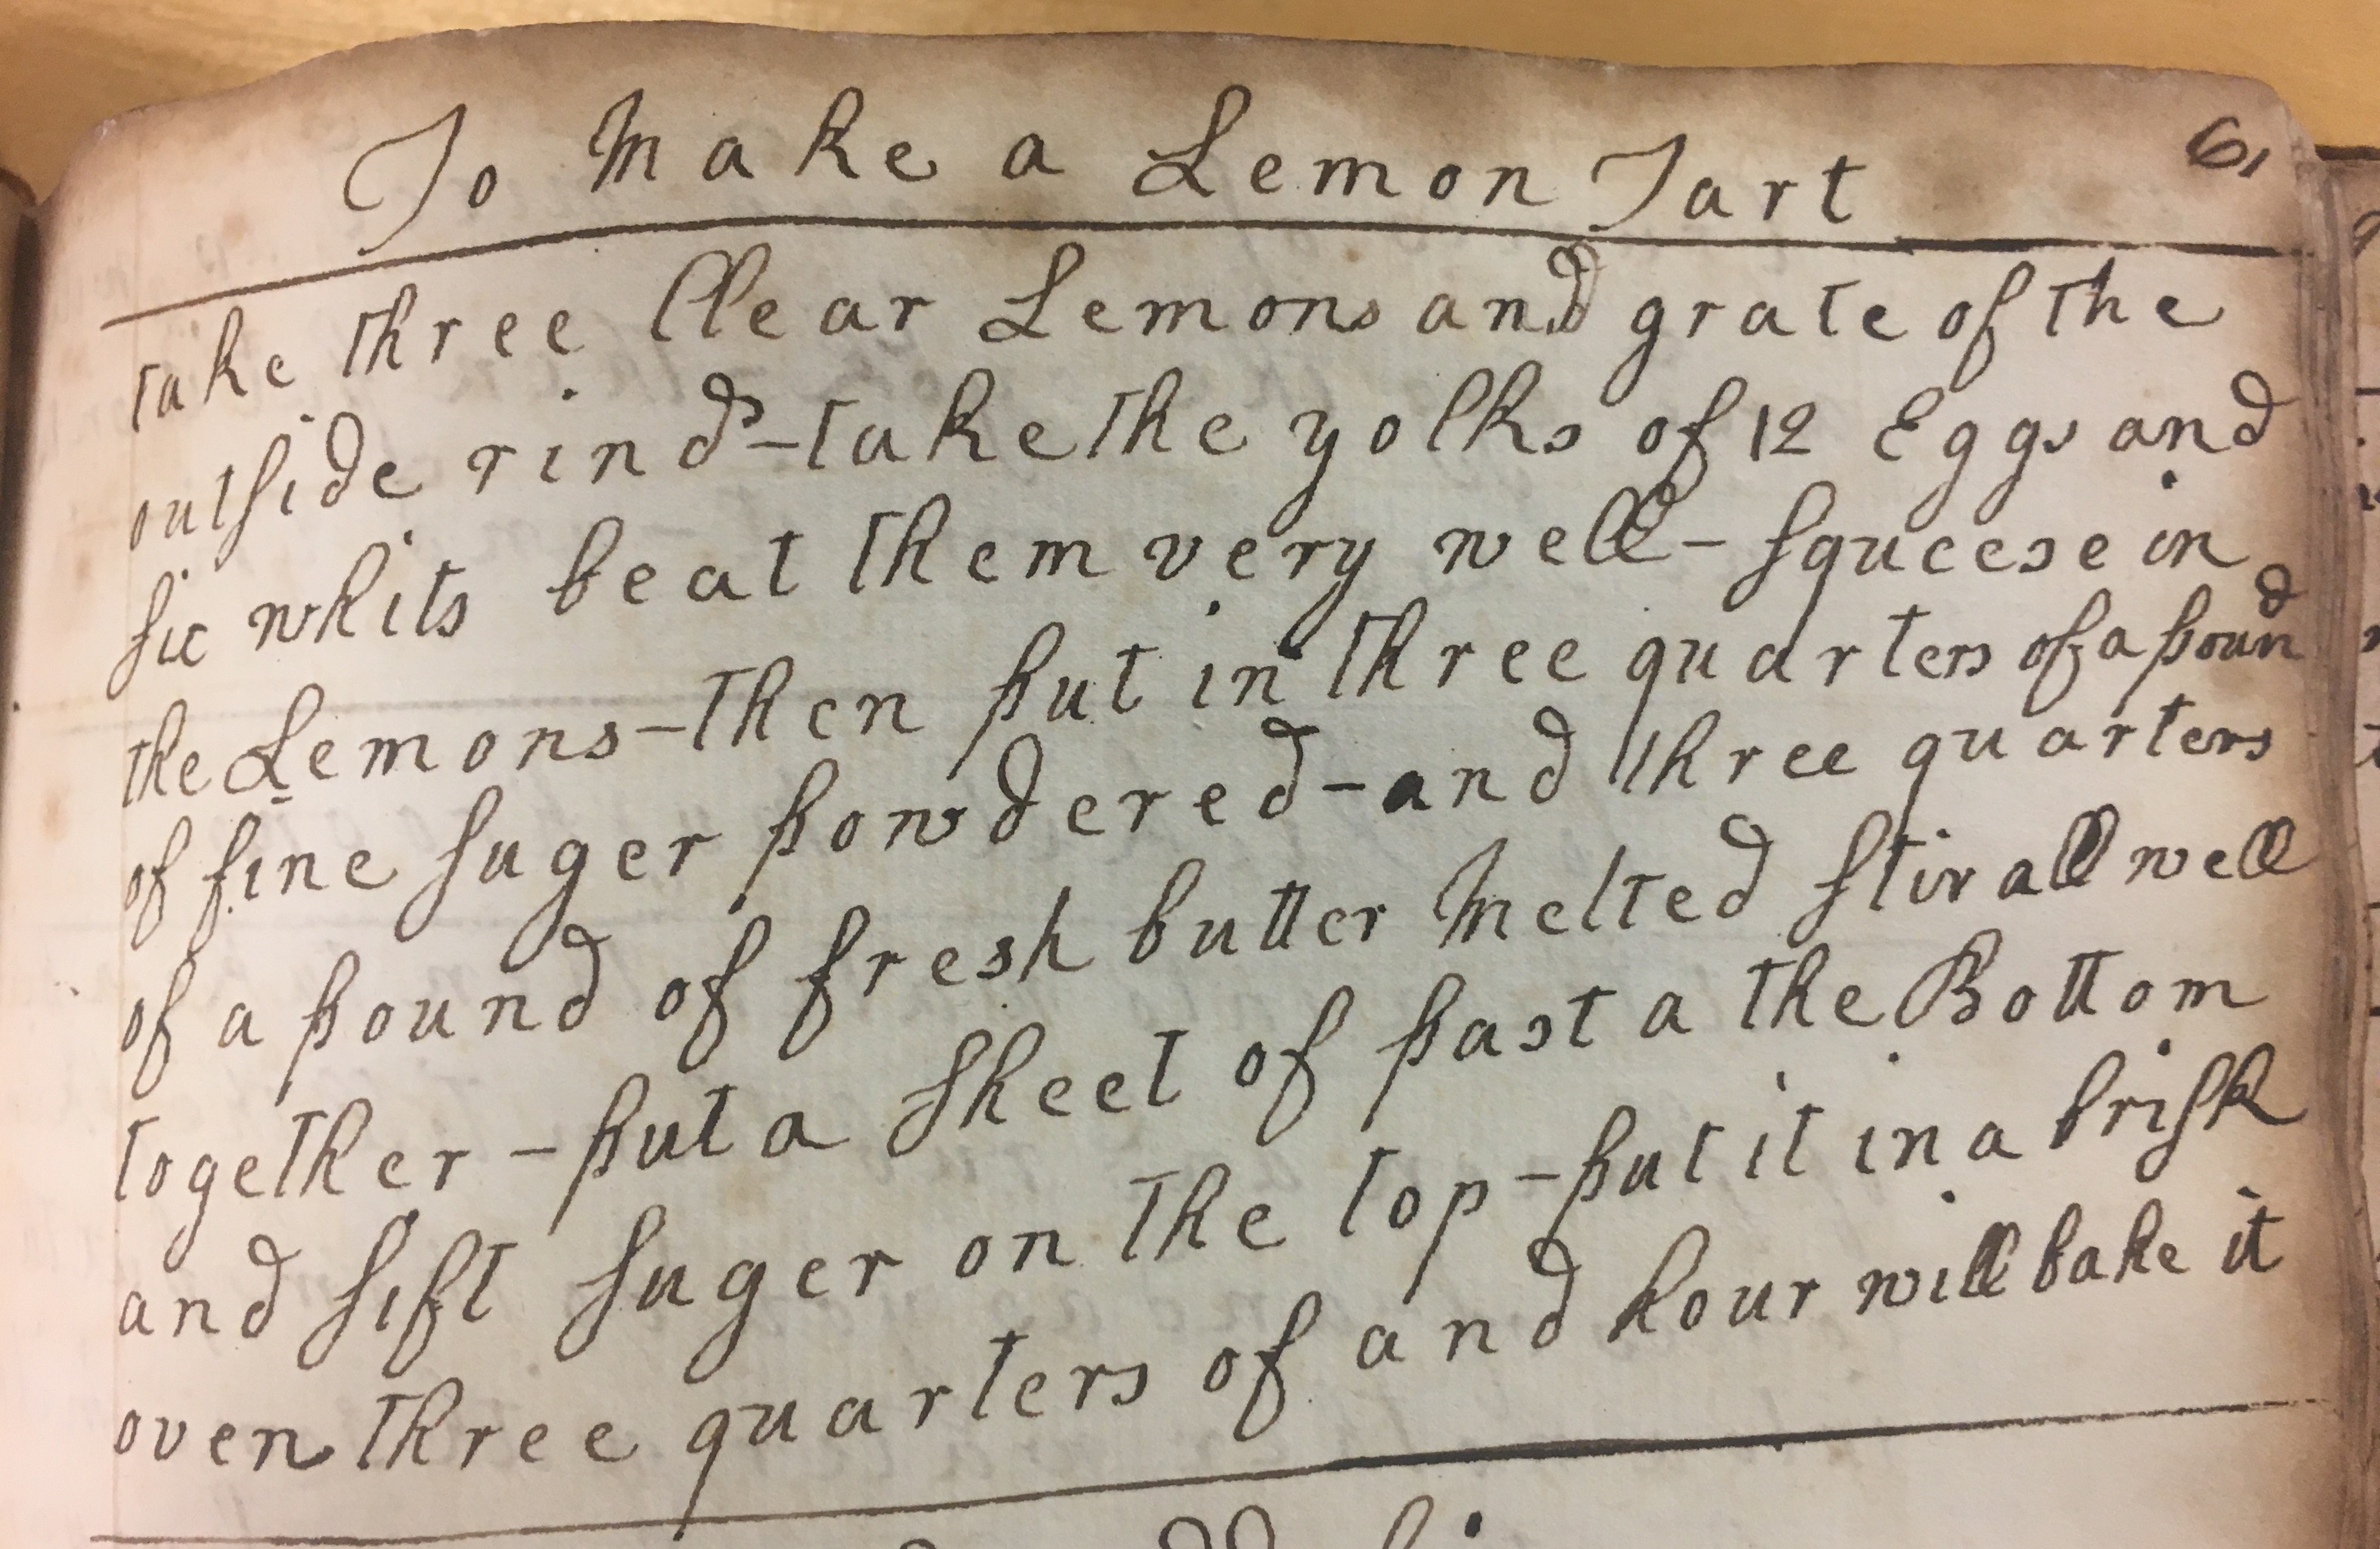 To Make a Lemon Tart
61
take three Clear Lemons and grate of the
outside rind - take the yolks of 12 Eggs and
six whits beat them very well - squeese in
the Lemons - then put in three quarters of a pound
of fine suger powdered - and three quarters
of a pound of fresh butter Melted stir all well
together - put a sheet of past a the Bottom
and sift suger on the top - put it in a brisk
oven three quarters of and hour will bake it